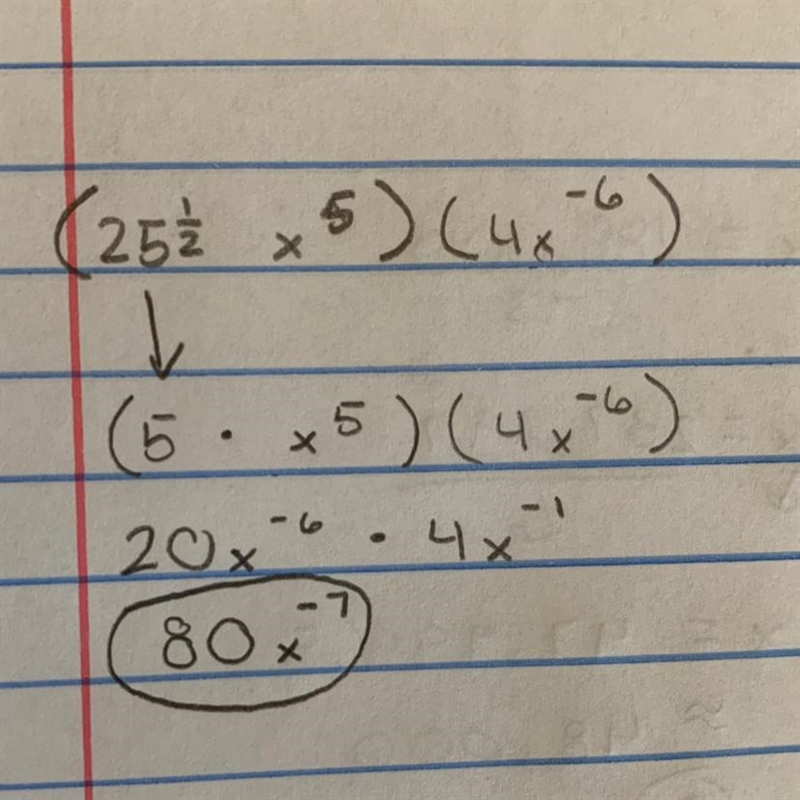 (25^½ x^5)(4x^-6)
↓
(5 · x^5)(4x^-6)
20x^-6 · 4x^-1
80x^-7